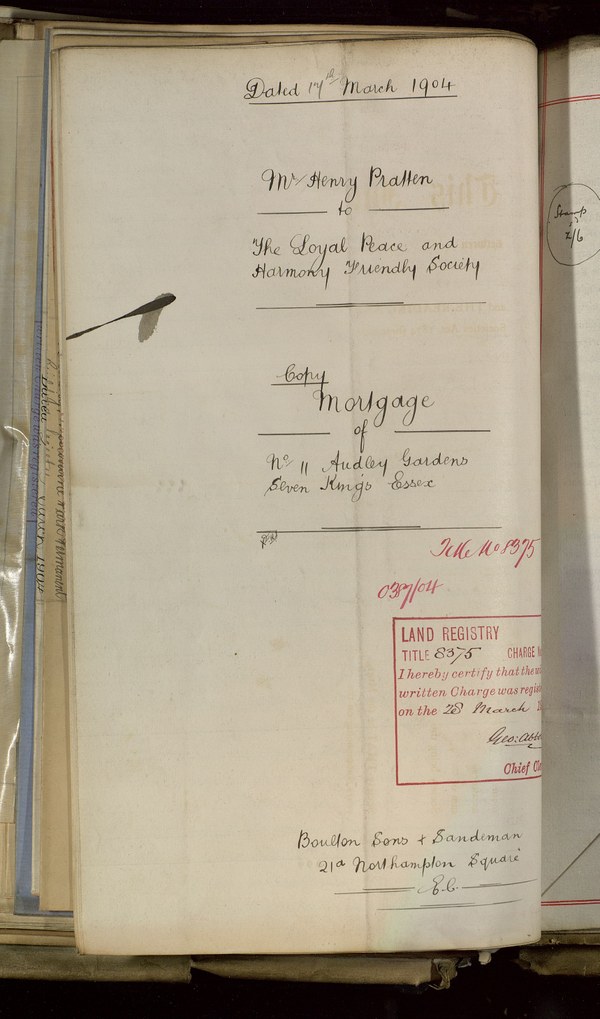 Dated 17th March 1904
Mr Henry Pratten
to
The Loyal Peace and
Harmony Friendly Society
Copy
Mortgage
of
No 11 Audley Gardens
Seven Kings Essex
Title No 8375
037/04
LAND REGISTRY
TITLE 8375 CHARGE
I hereby certify that the
written Charge was regis
on the 28 March
Geo: Abb
Chief Cl
Boulton Sons & Sandeman
21a Northampton Square
E.C.
Stamp
2/6